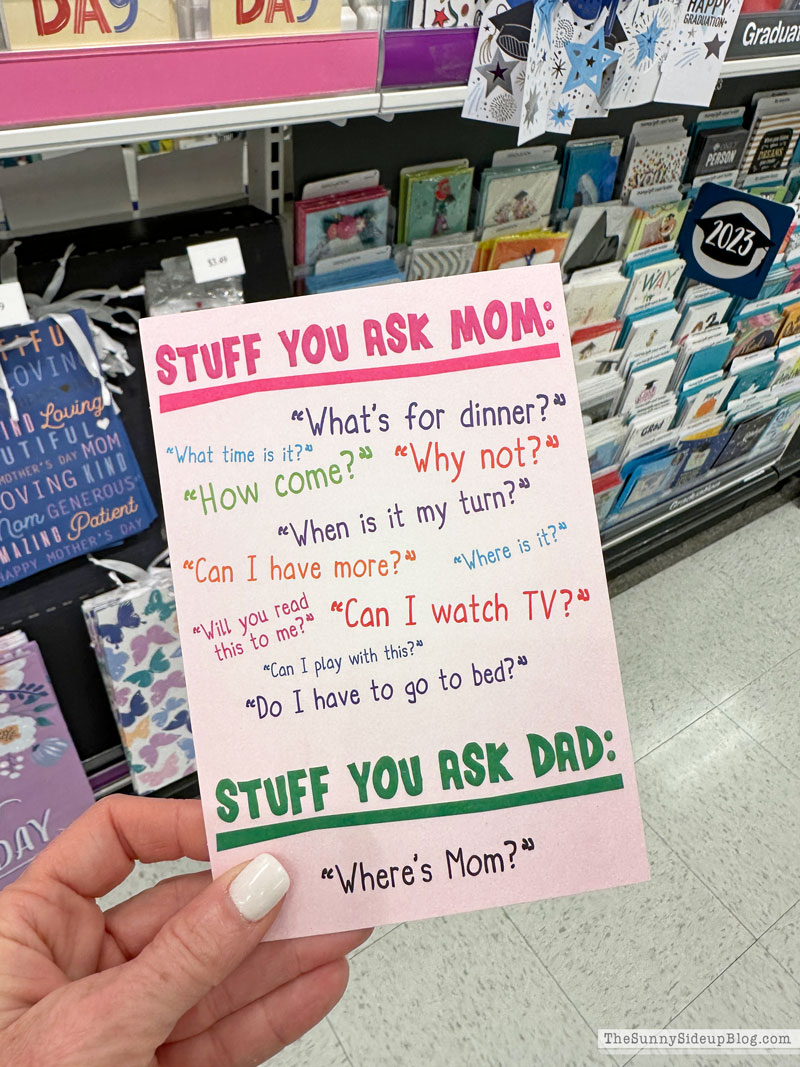 DAY
DAY
HAPPY
GRADUATION
Graduat
$3.49
YOU
PERSON
DREAMS
2023
WAY
STUFF YOU ASK MOM:
"What's for dinner?"
"What time is it?"
"How come?"
"Why not?"
"When is it my turn?"
"Can I have more?"
"Where is it?"
"Will you read
this to me?"
"Can I watch TV?"
"Can I play with this?"
"Do I have to go to bed?"
STUFF YOU ASK DAD:
"Where's Mom?"
LOVING
Loving
MOTHER'S DAY MOM
LOVING KIND
Mom GENEROUS
AMAZING Patient
HAPPY MOTHER'S DAY
DAY
Graduation
TheSunnySideupBlog.com